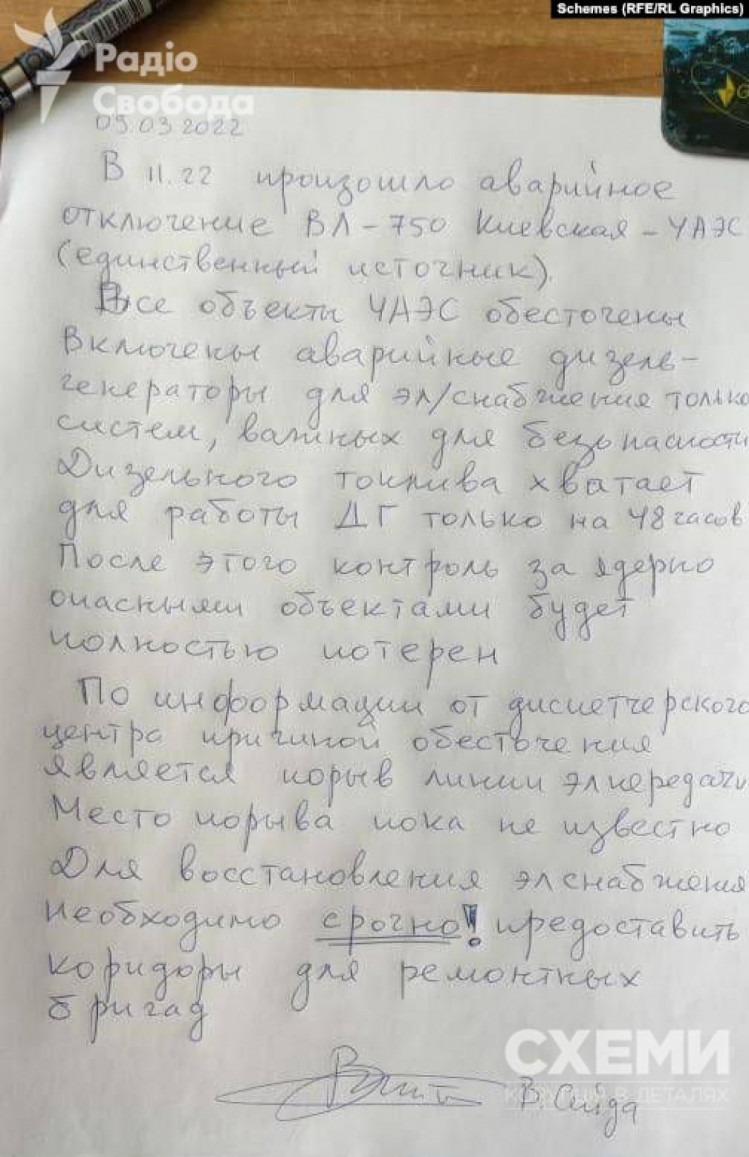 Schemes (RFE/RL Graphics)
Радіо
Свобода
09.03.2022
В 11.22 произошло аварийное
отключение ВЛ-750 Киевская-ЧАЭС
(единственный источник).
Все объекты ЧАЭС обесточены
Включены аварийные дизель-
генераторы для эл/снабжения только
систем, важных для безопасности
Дизельного топлива хватает
для работы ДГ только на 48 часов.
После этого контроль за ядерно
опасными объектами будет
полностью потерен
По информации от диспетчерского
центра причиной обесточения
является порыв линии элпередачи
Место порыва пока не известно
Для восстановления элснабжения
необходимо срочно! предоставить
коридоры для ремонтных
бригад
СХЕМИ
КОРУПЦІЯ В ДЕТАЛЯХ
В. Сейда